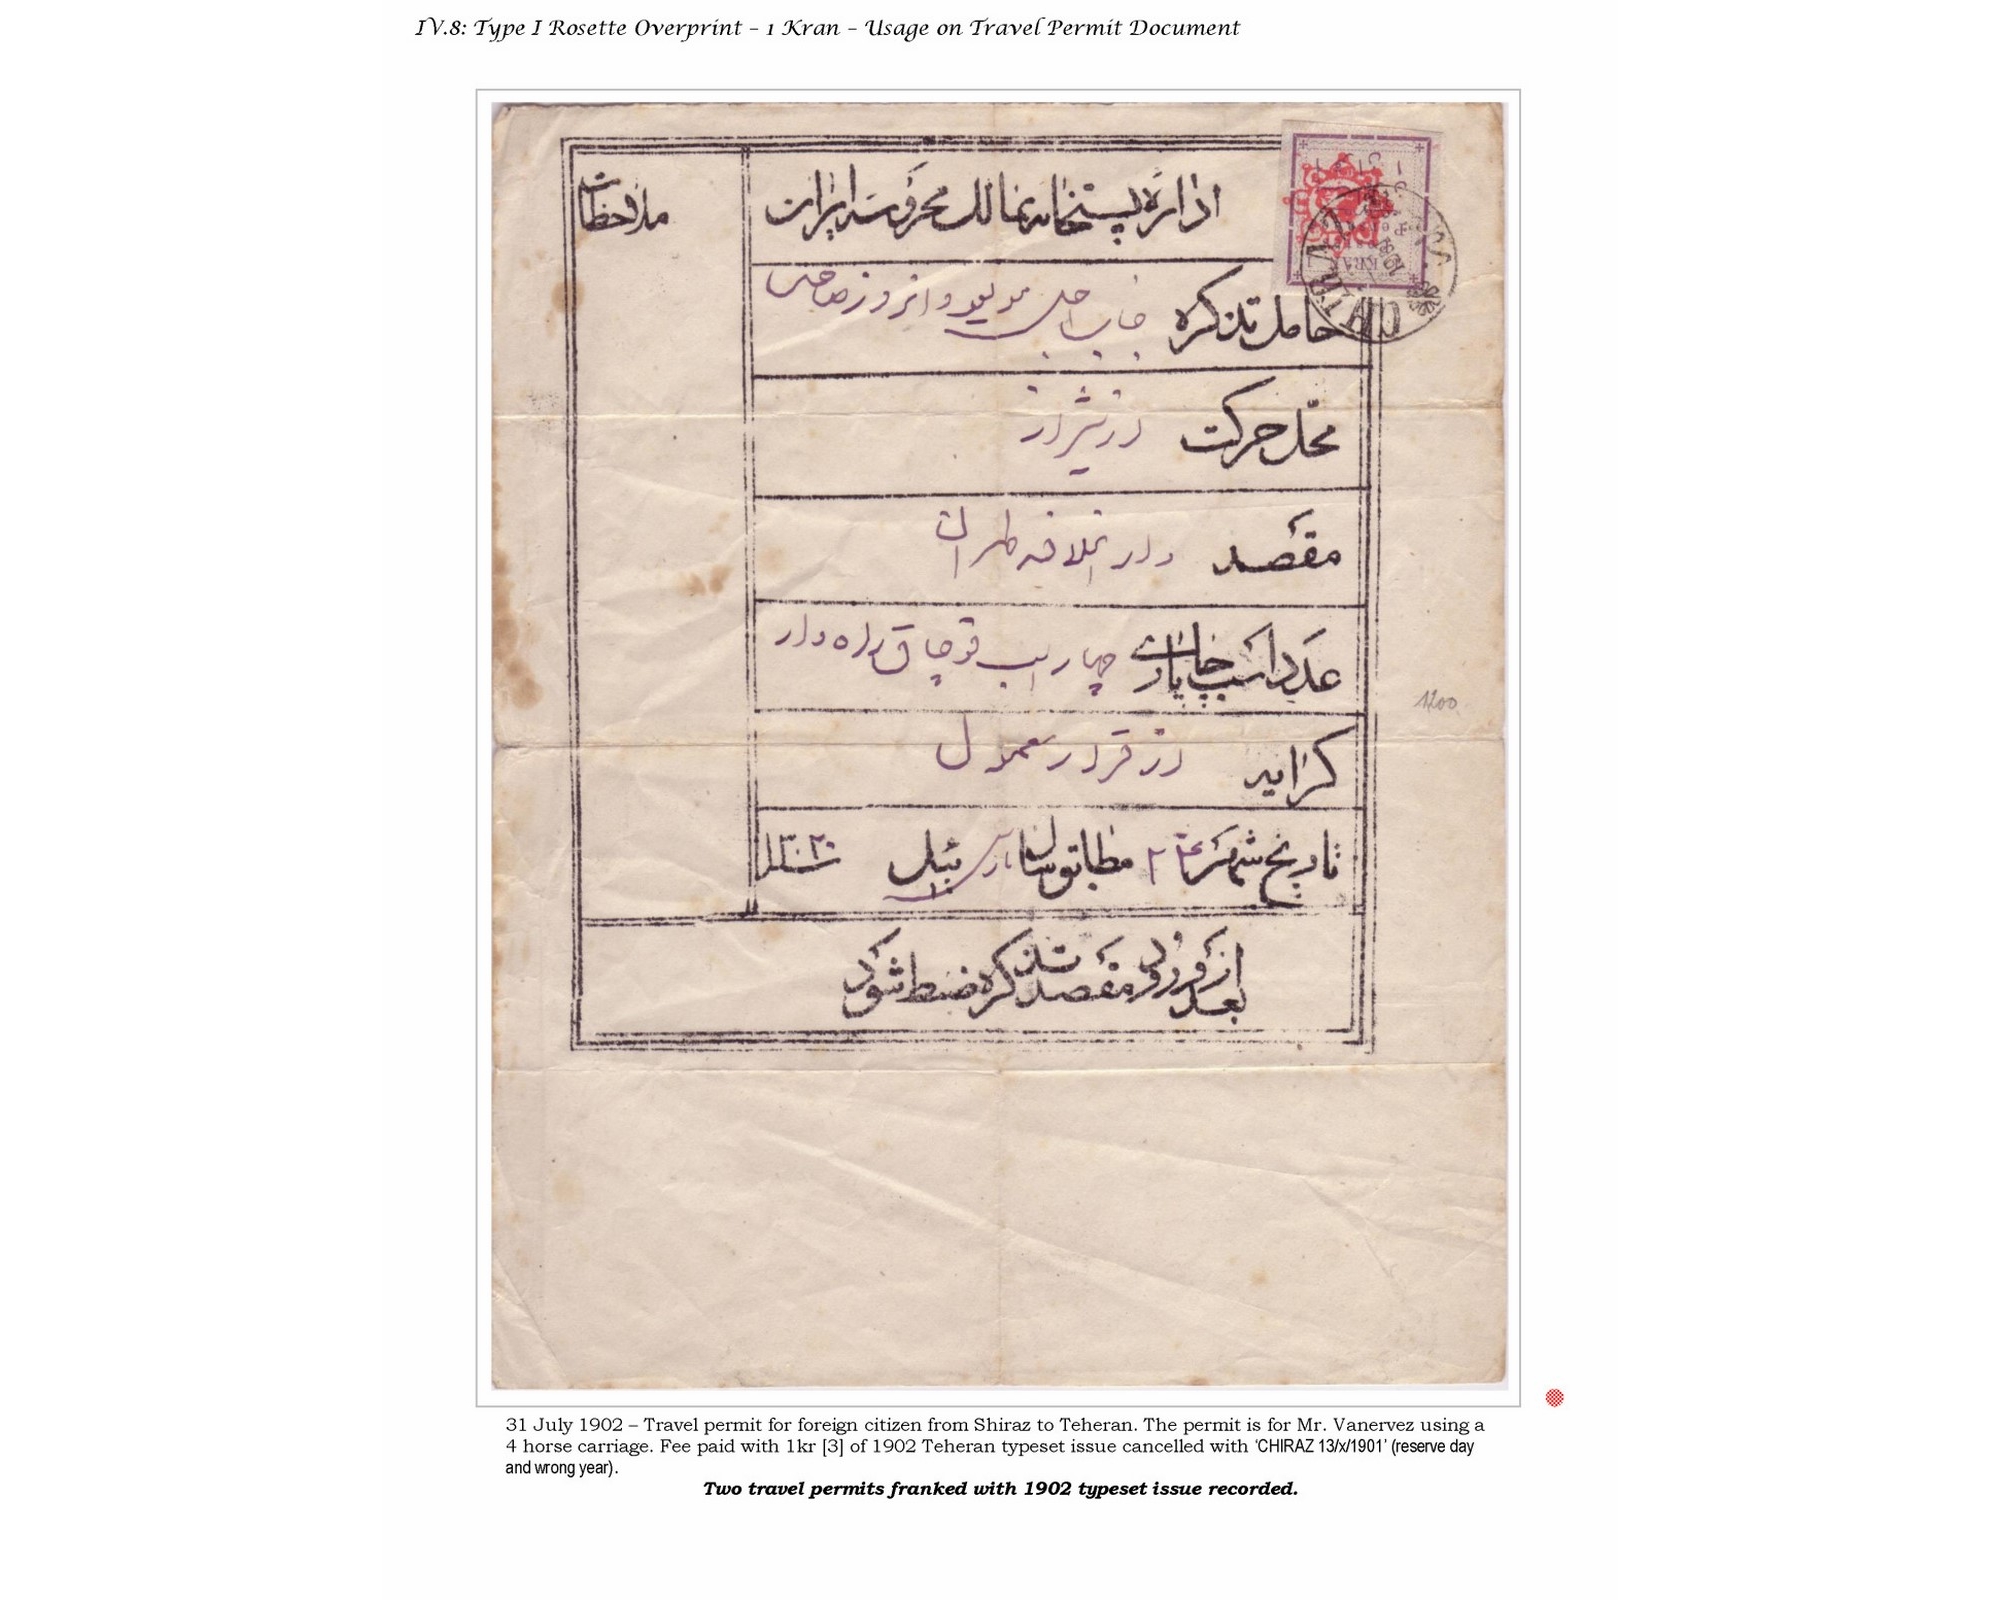 IV.8: Type I Rosette Overprint – 1 Kran – Usage on Travel Permit Document
اداره پستخانه ممالک محروسه ایران
ملاحظات
حامل تذکره جناب اجل
محل حرکت از شیراز
مقصد دار الخلافه طهران
عدد اسب چاپاری چهار اسب قوچاق راه دار
کرایه از قرار معمول
تاریخ شهر ۲۴ مطابق سال بارس ئیل سنه ۱۳۲۰
بعد از ورود مقصد تذکره ضبط شود
KRAN
1200
31 July 1902 – Travel permit for foreign citizen from Shiraz to Teheran. The permit is for Mr. Vanervez using a
4 horse carriage. Fee paid with 1kr [3] of 1902 Teheran typeset issue cancelled with ‘CHIRAZ 13/x/1901’ (reserve day
and wrong year).
Two travel permits franked with 1902 typeset issue recorded.